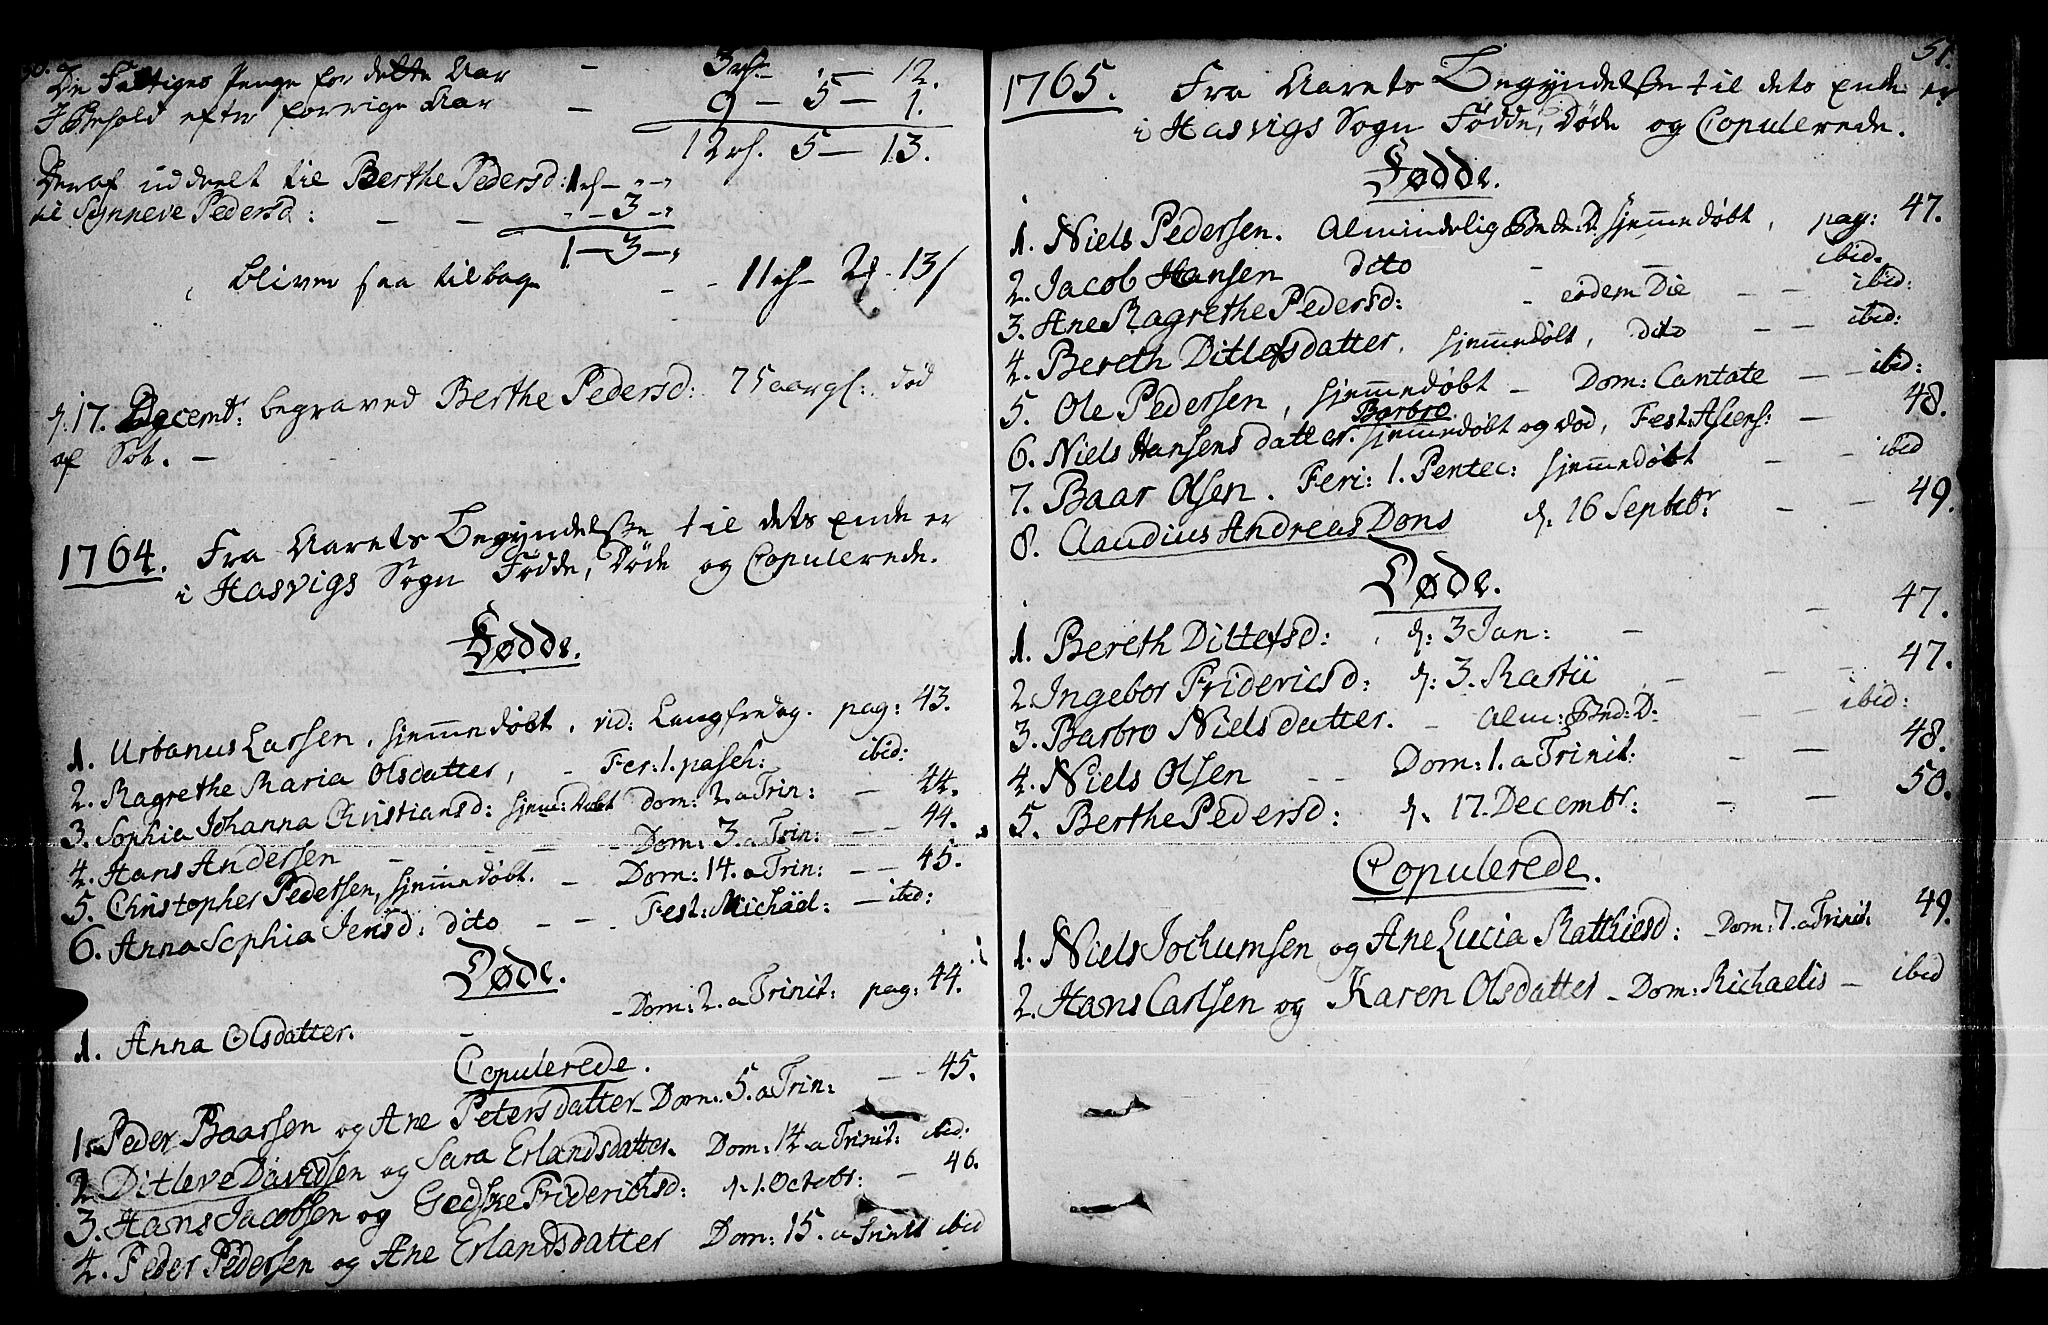 50.
De Fattiges Penge for dette Aar - 3 rh - " - 12.
I Behold efter forrige Aar - 9 - 5 - 1.
12 rh. 5 - 13.
Deraf uddeelt til Berthe Pedersd: 1 rh - " - "
til Synneve Pedersd: - - " - 3 - "
1 - 3 - "
bliver saa tilbage - - 11 rh - 2 - 13
d: 17. Decembr: begraved Berthe Pedersd: 75 aar gl: død
af Sot. -
1764. Fra Aarets Begyndelse til dets Ende er
i Hasvigs Sogn Fødde, Døde og Copulerede.
Fødde.
1. Urbanus Larsen, hjemmedøbt, vid: Langfredag. pag: 43.
2. Magrethe Maria Olsdatter, - Fer: 1. pasch: ibid:
3. Sophia Johanna Christiansd: hjem: Døbt Dom: 2. a Trin: - 44.
4. Hans Andersen - - - Dom: 3. a Trin: - - 44.
5. Christopher Pedersen, hjemmedøbt. - Dom: 14. a Trin: - - 45.
6. Anna Sophia Jensd: dito - - - Fest: Michäel: - ibid:
Døde.
1. Anna Olsdatter. - - Dom: 2. a Trinit: pag: 44.
Copulerede.
1. Peder Baarsen og Ane Petersdatter - Dom: 5. a Trin: - - 45.
2. Ditleve Davidsen og Sara Erlandsdatter. Dom: 14 a Trinit: ibid:
3. Hans Jacobsen og Gedske Friderichsd: d. 1. Octobr: - 46.
4. Peder Pedersen og Ane Erlandsdatter Dom: 15. a Trinit ibid
51.
1765. Fra Aarets Begyndelse til dets Ende er
i Hasvigs Sogn Fødde, Døde og Copulerede.
Fødde.
1. Niels Pedersen. Almindelig Bede D. hjemmedøbt, pag: 47.
2. Jacob Hansen dito - - ibid.
3. Ane Magrethe Pedersd: - eodem Die - - ibid:
4. Bereth Ditlefsdatter, hjemmedøbt, dito - - ibid:
5. Ole Pedersen, hjemmedøbt - Dom: Cantate - - ibid:
Barbro
6. Niels Hansens datter. hjemmedøbt og død, Fest: Asens: - 48.
7. Baar Olsen. Feri: 1. Pentec: hjemmedøbt - - ibid
8. Claudius Andreas Dons d. 16 Septebr - - 49.
Døde.
1. Bereth Dittefsd: d: 3 Jan: - - 47.
2. Ingebor Friderichsd: d: 3. Martii - - 47.
3. Barbro Nielsdatter. - Alm: Bed: D. - - ibid:
4. Niels Olsen - - Dom: 1. a Trinit: - - 48.
5. Berthe Pedersd: d. 17. Decembr: - - 50.
Copulerede.
1. Niels Jochumsen og Ane Lucia Matthiesd: - Dom: 7. a Trinit: 49.
2. Hans Carlsen og Karen Olsdatter - Dom: Michaelis - ibid